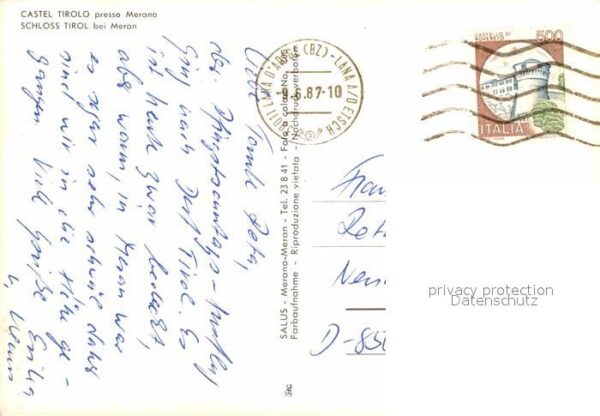 CASTEL TIROLO presso Merano
SCHLOSS TIROL bei Meran
Liebe Tante Reta,
der Pfingstsonntags-Ausflug
ging nach Dorf Tirol. Es
ist heute zwar bedeckt,
aber warm, in Meran war
es sogar sehr schwül daher
sind wir in die Höhe ge-
gangen. Viele Grüße
SALUS - Merano-Meran - Tel. 23 8 41 - Foto a colori
Farbaufnahme - Riproduzione vietata - Nachdruck verboten
39011 LANA D'ADIGE (BZ) - LANA A/D ETSCH
-9.6.87-10
CASTELLO DI
ROVERETO
500
ITALIA
Frau
Ret
D-850
privacy protection
Datenschutz